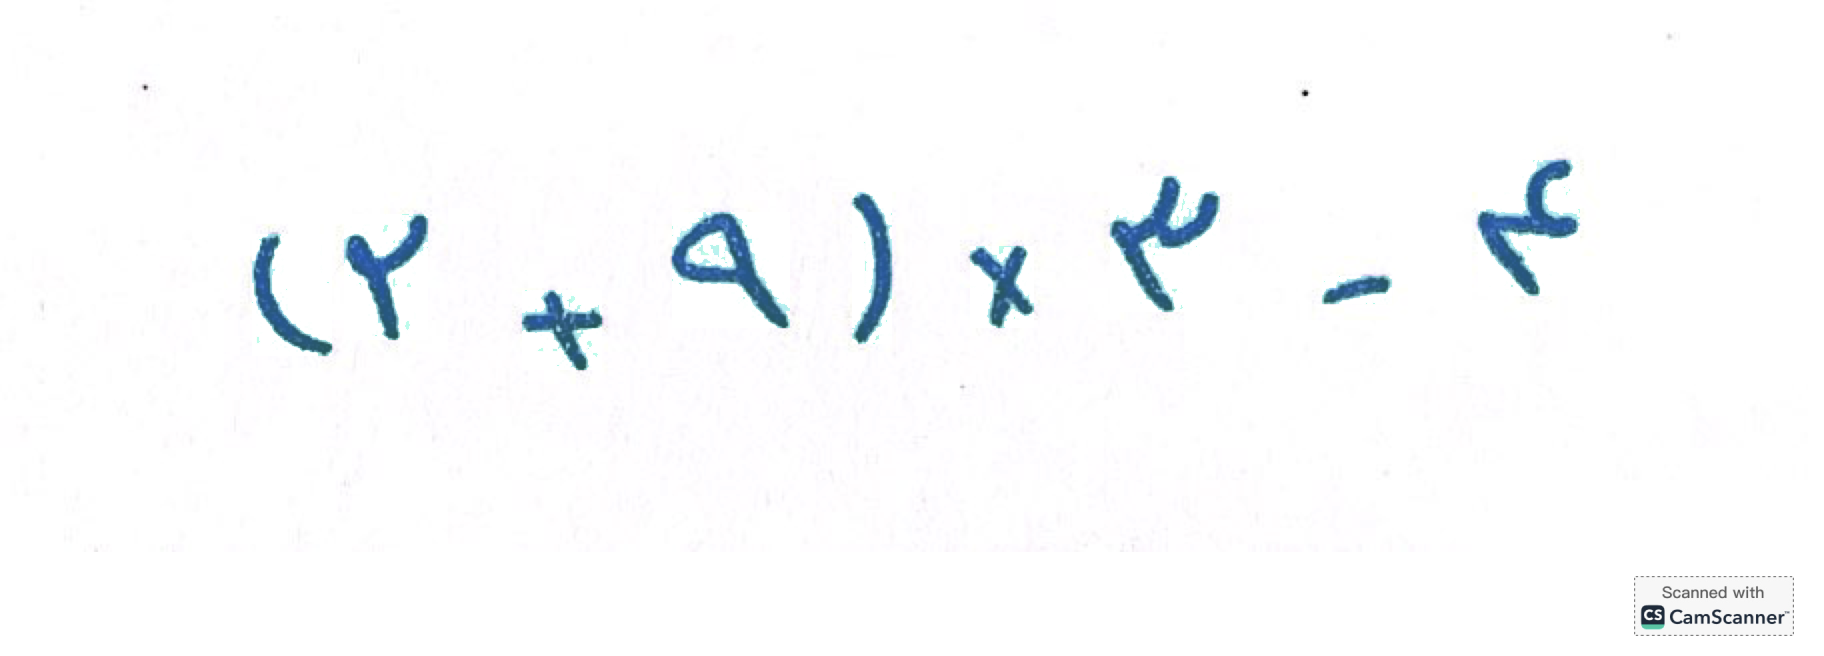 (۲ + ۹) × ۳ - ۴
Scanned with
CS CamScanner™